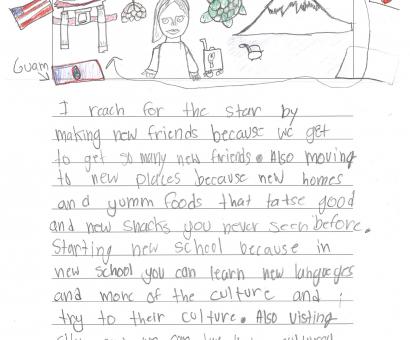 Guam
I reach for the star by
making new friends because we get
to get so many new friends. Also moving
to new places because new homes
and yumm foods that tatse good
and new snacks you never seen before.
Starting new school because in
new school you can learn new languges
and more of the culture and i
try to their culture. Also visting